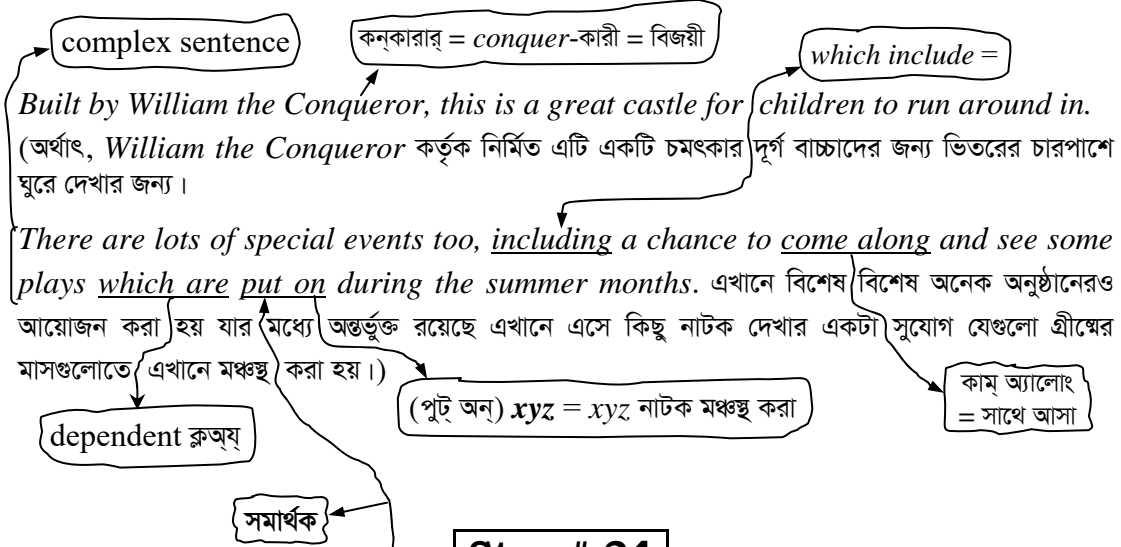 complex sentence
কন্‌কারার্ = conquer-কারী = বিজয়ী
which include =
Built by William the Conqueror, this is a great castle for children to run around in.
(অর্থাৎ, William the Conqueror কর্তৃক নির্মিত এটি একটি চমৎকার দূর্গ বাচ্চাদের জন্য ভিতরের চারপাশে
ঘুরে দেখার জন্য।
There are lots of special events too, including a chance to come along and see some
plays which are put on during the summer months. এখানে বিশেষ বিশেষ অনেক অনুষ্ঠানেরও
আয়োজন করা হয় যার মধ্যে অন্তর্ভুক্ত রয়েছে এখানে এসে কিছু নাটক দেখার একটা সুযোগ যেগুলো গ্রীষ্মের
মাসগুলোতে এখানে মঞ্চস্থ করা হয়।)
(পুট্ অন্) xyz = xyz নাটক মঞ্চস্থ করা
কাম্ অ্যালোং
= সাথে আসা
dependent ক্লঅয্
সমার্থক